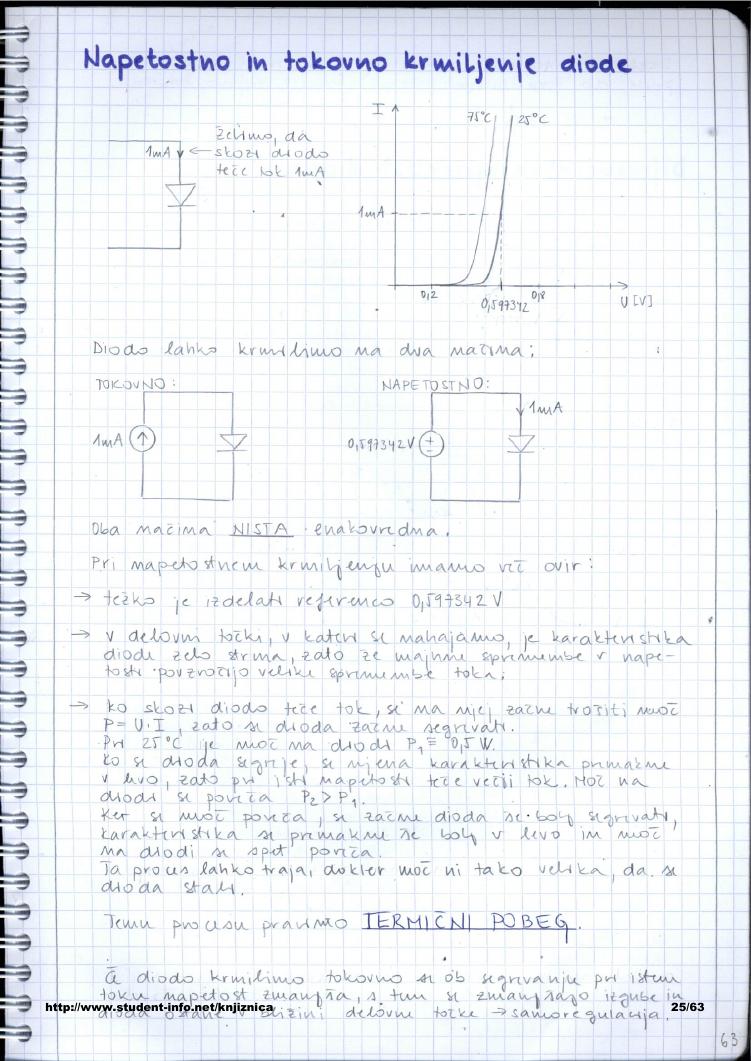 Napetostno in tokovno krmiljenje diode
I
75°C
25°C
1mA
želimo, da
skozi diodo
teče tok 1mA
1mA
0,2
0,597342
0,8
U [V]
Diodo lahko krmilimo na dva načina:
TOKOVNO:
NAPETOSTNO:
1mA
1mA
0,597342V
Oba načina NISTA enakovredna.
Pri napetostnem krmiljenju imamo več ovir:
→ težko je izdelati referenco 0,597342 V
→ v delovni točki, v kateri se nahajamo, je karakteristika
diode zelo strma, zato že majhne spremembe v nape-
tosti povzročijo velike spremembe toka;
→ ko skozi diodo teče tok, se na njej začne trošiti moč
P = U·I, zato se dioda začne segrevati.
Pri 25°C je moč na diodi P₁ = 0,5 W.
Ko se dioda segreje, se njena karakteristika primakne
v levo, zato pri isti napetosti teče večji tok. Moč na
diodi se poveča P₂ > P₁.
Ker se moč poveča, se začne dioda še bolj segrevati,
karakteristika se primakne še bolj v levo in moč
na diodi se spet poveča.
Ta proces lahko traja, dokler moč ni tako velika, da se
dioda stali.
Temu procesu pravimo TERMIČNI POBEG.
Če diodo krmilimo tokovno se ob segrevanju pri istem
toku napetost zmanjša, s tem se zmanjšajo izgube in
http://www.student-info.net/knjiznica
25/63
dioda ostane v bližini delovne točke → samoregulacija.
63